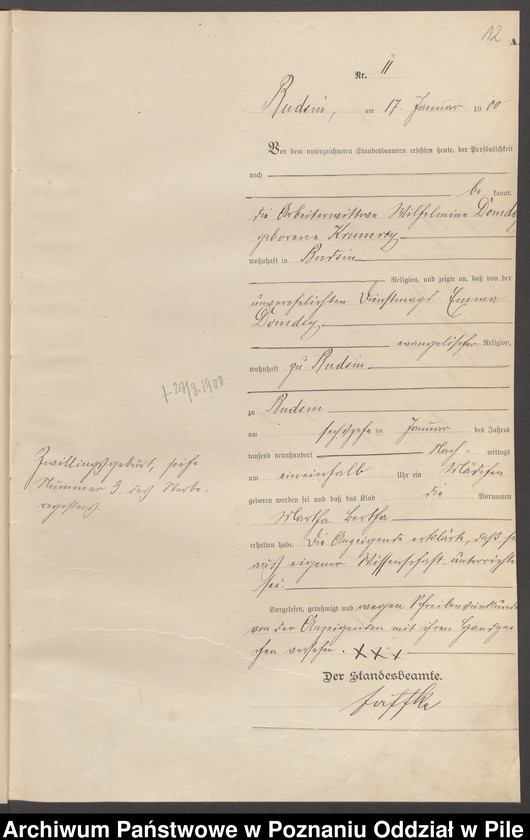 12
Nr. 11
Budsin, am 17. Januar 1900
Vor dem unterzeichneten Standesbeamten erschien heute, der Persönlichkeit
nach
be kannt
die Arbeiterwittwe Wilhelmine Domdey
geborene Krumrey
wohnhaft in Budsin
Religion, und zeigte an, daß von der
unverehelichten Dienstmagd Emma
Domdey
evangelischer Religion,
wohnhaft zu Budsin
zu Budsin
am sechszehn ten Januar des Jahres
tausend neunhundert Nach- mittags
um eineinhalb Uhr ein Mädchen
geboren worden sei und daß das Kind die Vornamen
Martha Bertha
erhalten habe. Die Anzeigende erklärte, daß sie
aus eigener Wissenschaft unterrichtet
sei.
Vorgelesen, genehmigt und wegen Schreibensunkunde
von der Anzeigenden mit ihren Handzei-
chen versehen. XXX
Der Standesbeamte.
Zwillingsgeburt, siehe
Nummer 3. des Sterbe-
registers
Archiwum Państwowe w Poznaniu Oddział w Pile